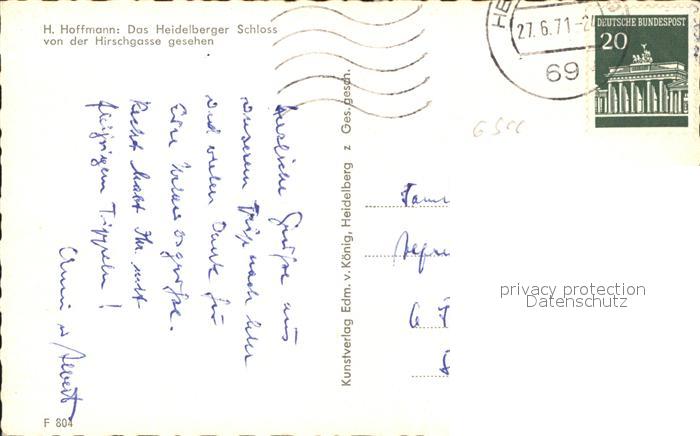 H. Hoffmann: Das Heidelberger Schloss
von der Hirschgasse gesehen
27.6.71-2
69
DEUTSCHE BUNDESPOST
20
Herzliche Grüße aus
unserem Trip nach hier
und vielen Dank für
Eure
Recht habt Ihr mit
fleißigem Tippeln!
Anni u Albert
Kunstverlag Edm. v. König, Heidelberg z Ges. gesch.
privacy protection
Datenschutz
F 804